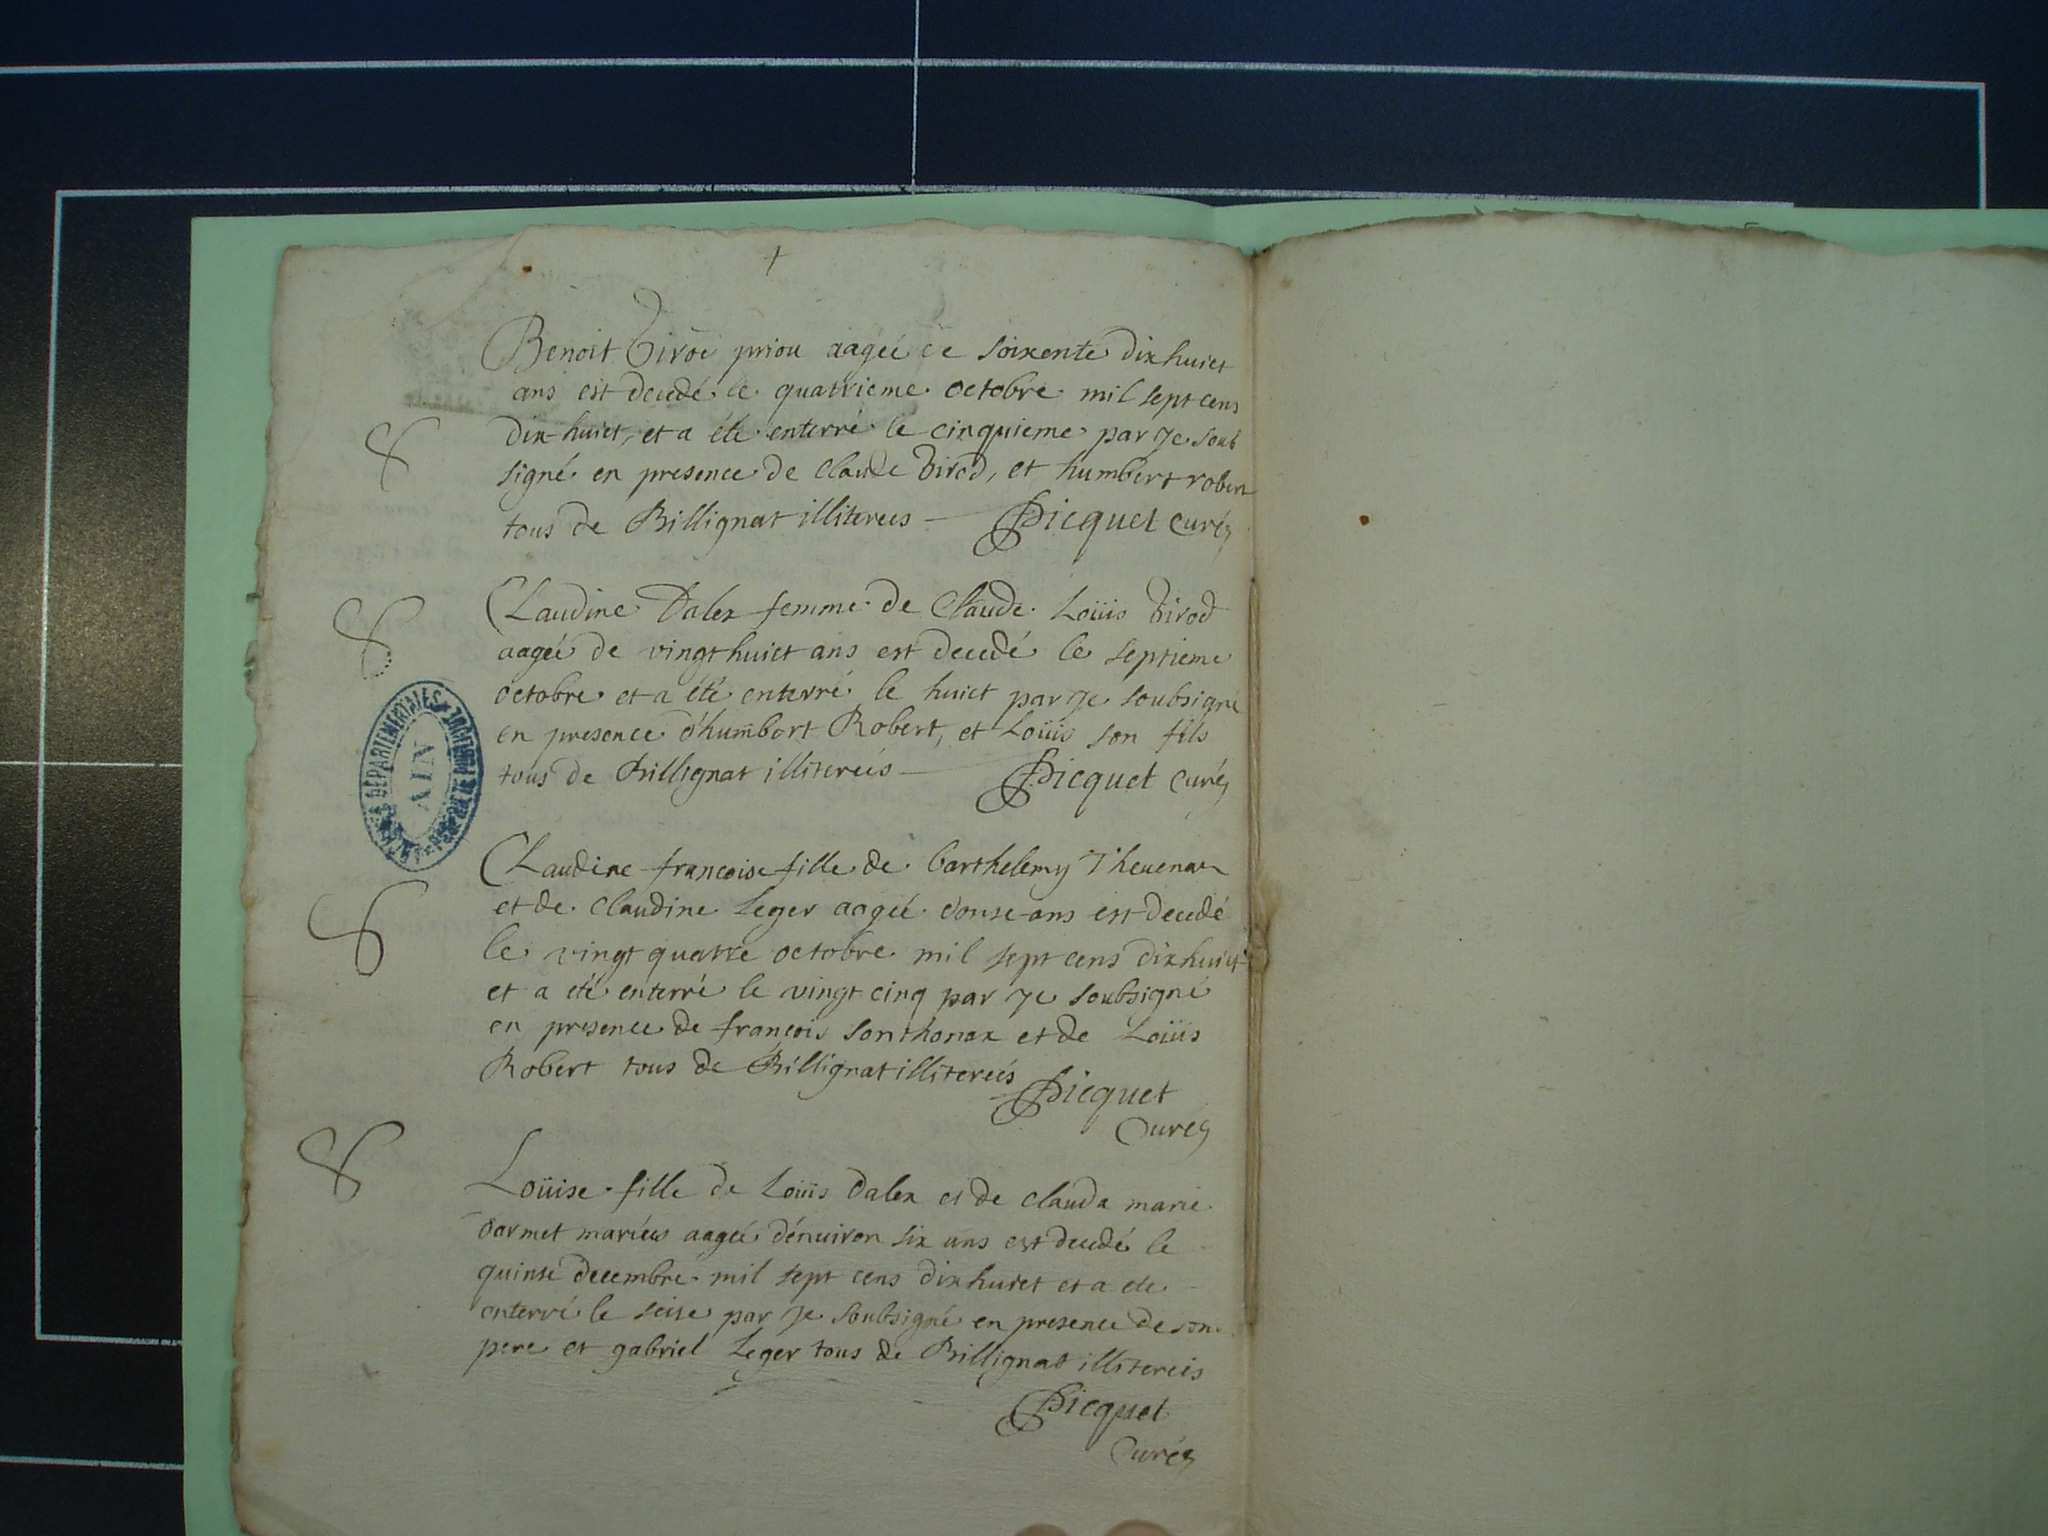 Benoit Tirod priou aagéé de soixente dix huict
ans est decedé le quatrieme octobre mil sept cens
dix-huict, et a été enterré le cinquieme par je soub
signé en presence de Claude Tirod, et humbert robert
tous de Billignat illiterees Picquet Curé
Claudine Dalex femme de Claude Loüis Tirod
aageé de vingt huict ans est decedé le septieme
octobre et a été enterré le huict par je soubsigné
en presence d'humbert Robert, et Loüis son fils
tous de Billignat illitereés Picquet Curé
Claudine francoise fille de barthelemy Thevenar
et de Claudine Leger aageé donse ans est decedé
le vingt quatre octobre mil sept cens dix huict
et a été enterré le vingt cinq par je soubsigné
en presence de françois Sonthonax et de Loüis
Robert tous de Billignat illitereés Picquet
Curé
Loüise fille de Loüis Dalex et de Clauda marie
Dormet mariées aageé dénuiron six ans est decedé le
quinse decembre mil sept cens dix huict et a ete
enterré le seise par je soubsigné en presence de son
pere et gabriel Leger tous de Billignat illitereés
Picquet
Curé
ARCHIVES DEPARTEMENTALES
AIN